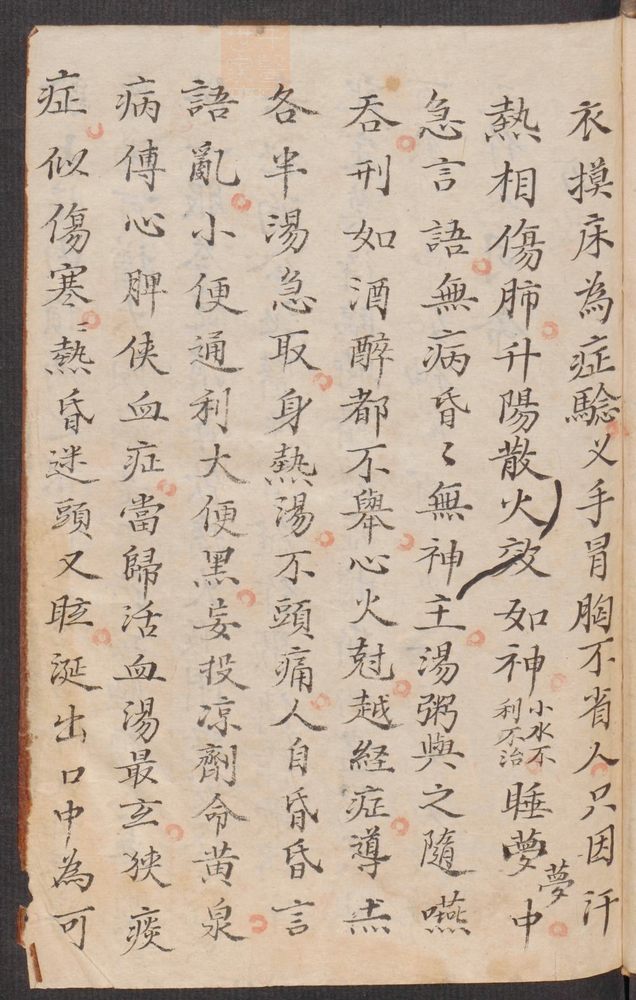 衣摸床為症驗义手冒胸不省人只因汗
熱相傷肺升陽散火效如神小水不利不治睡夢中
夢
急言語無病昏〻無神主湯粥與之隨嚥
吞刑如酒醉都不舉心火尅越経症導赤
各半湯急取身熱湯不頭痛人自昏昏言
語亂小便通利大便黑妄投凉劑命黄泉
病傳心脾侠血症當歸活血湯最玄狹痰
症似傷寒〻熱昏迷頭又眩涎出口中為可